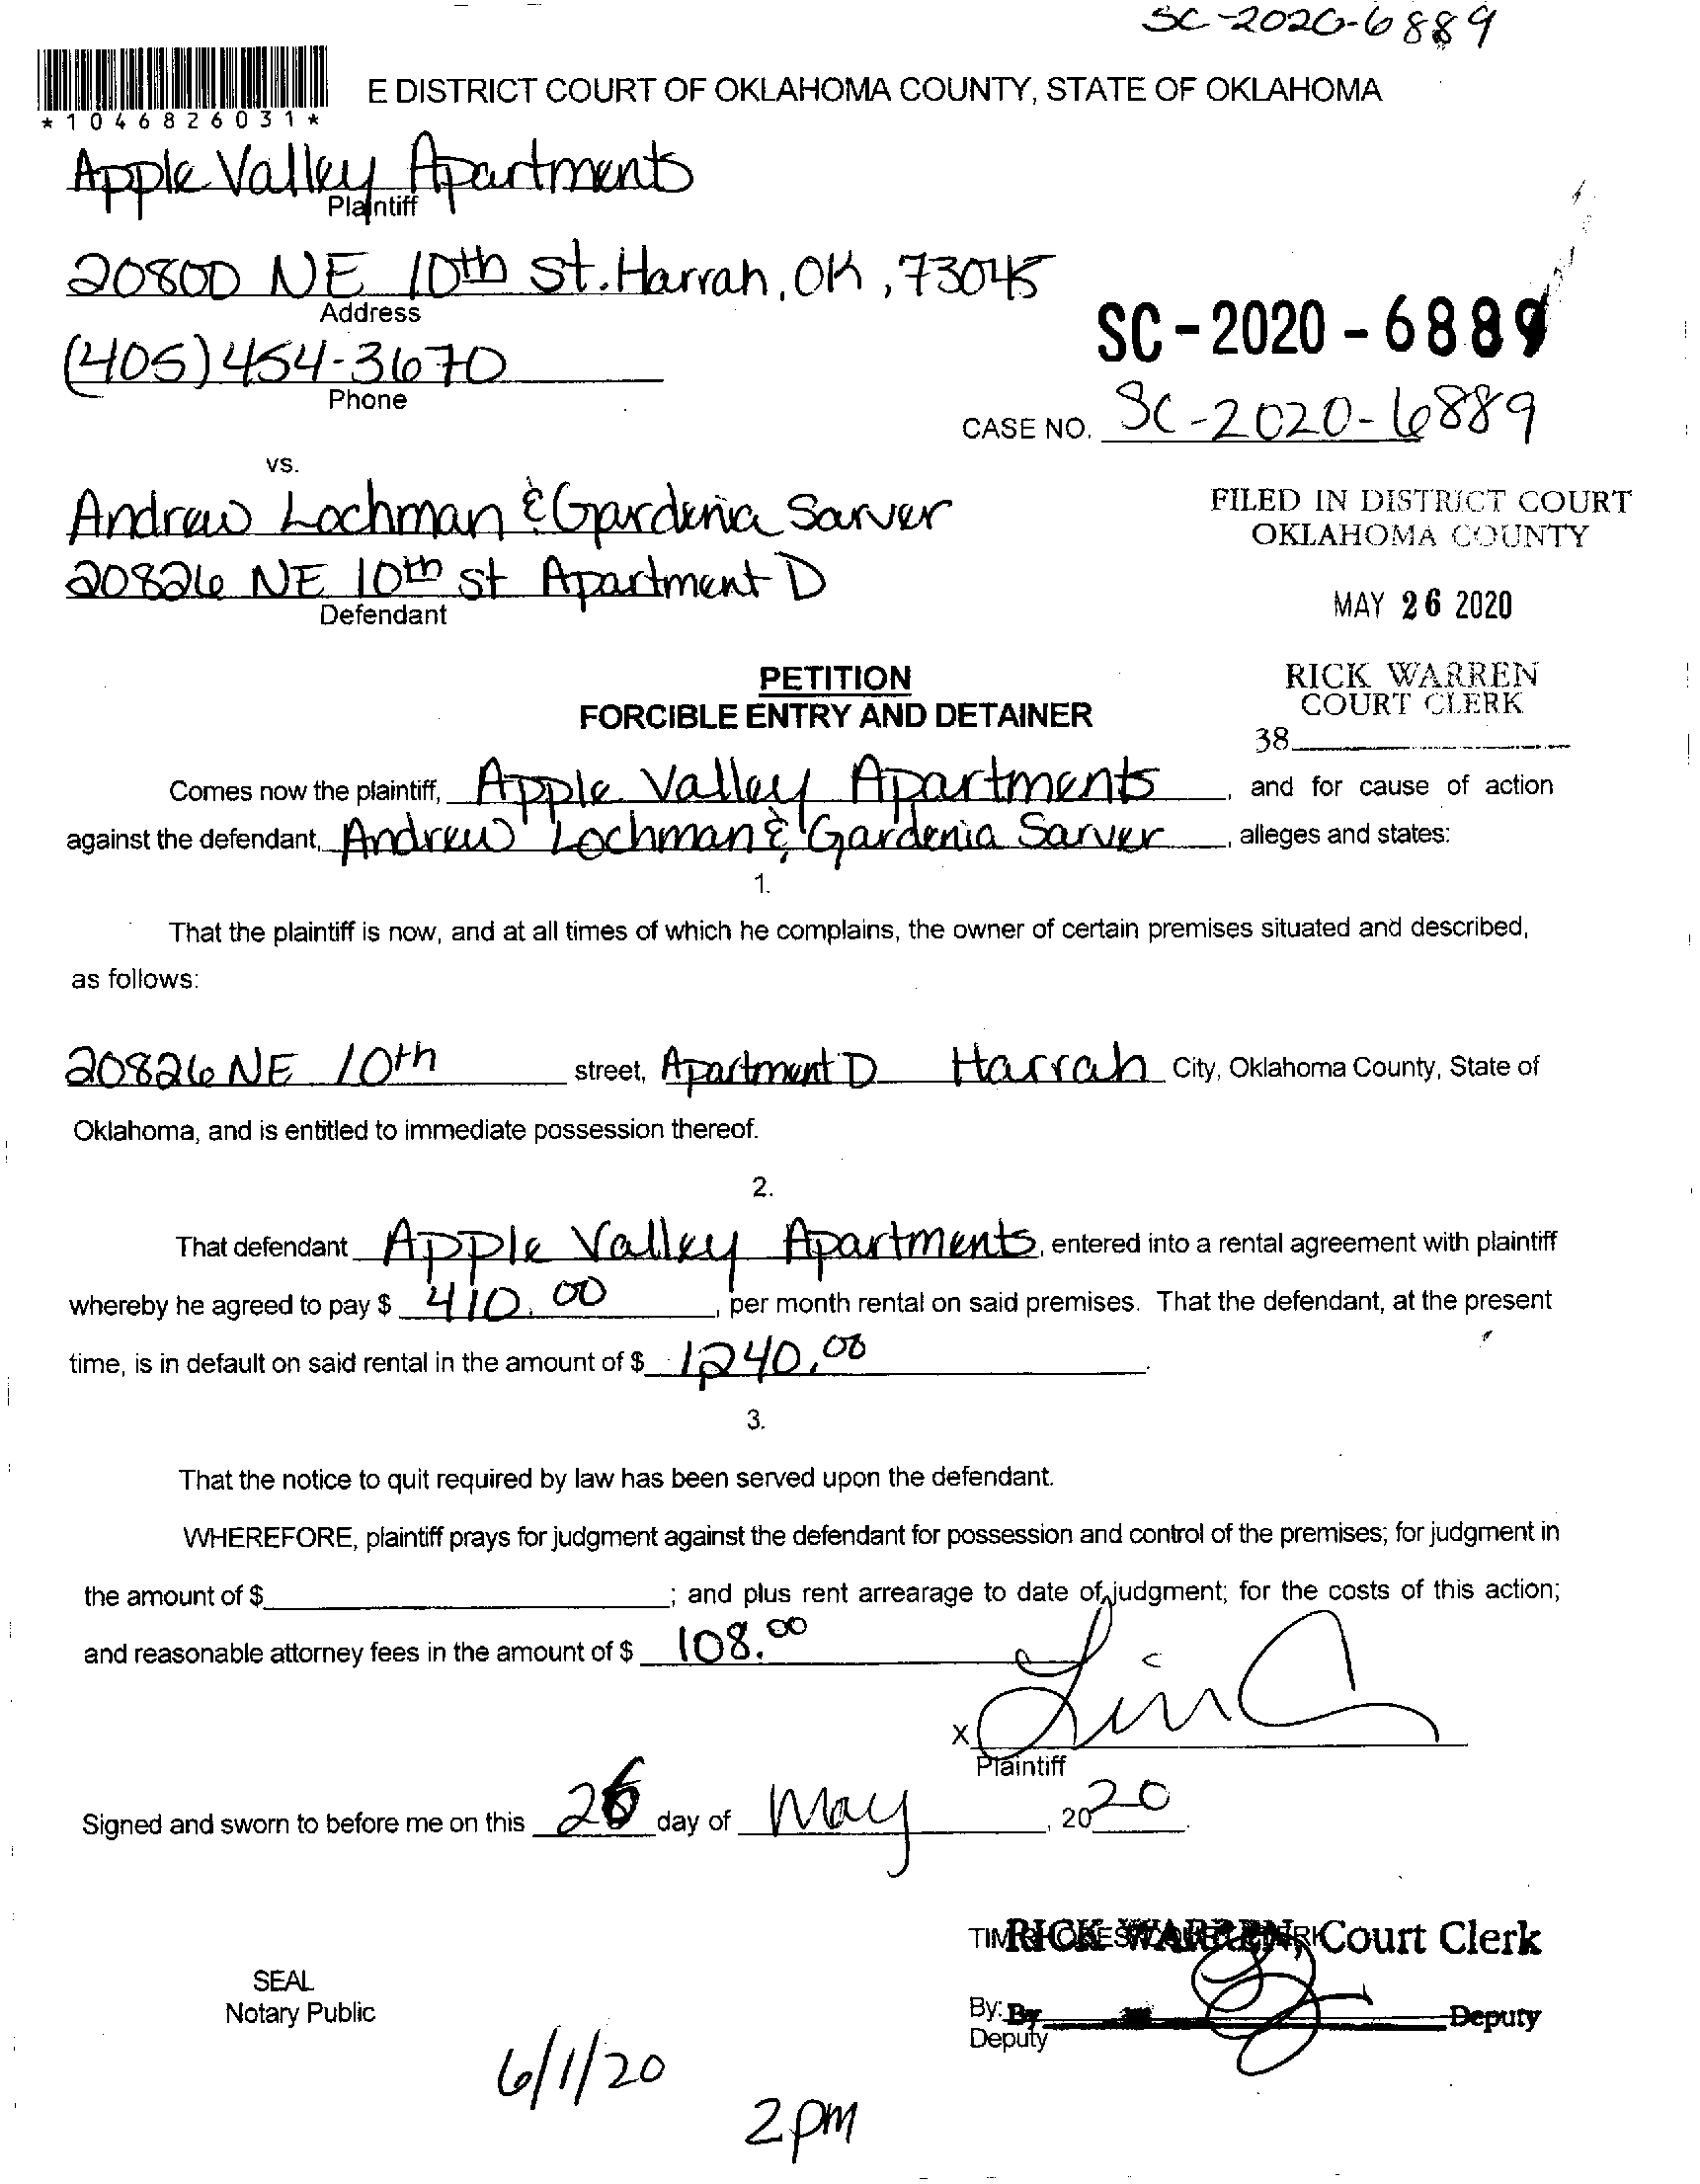 SC-2020-6889
E DISTRICT COURT OF OKLAHOMA COUNTY, STATE OF OKLAHOMA
*1046826031*
Apple Valley Apartments
Plaintiff
20800 NE 10th St. Harrah, OK, 73045
Address
SC-2020-6889
(405)454-3670
Phone
CASE NO. SC-2020-6889
vs.
Andrew Lochman & Gardenia Sarver
FILED IN DISTRICT COURT
OKLAHOMA COUNTY
20826 NE 10th St Apartment D
Defendant
MAY 26 2020
PETITION
RICK WARREN
COURT CLERK
FORCIBLE ENTRY AND DETAINER
38
Comes now the plaintiff, Apple Valley Apartments, and for cause of action
against the defendant, Andrew Lochman & Gardenia Sarver, alleges and states:
1.
That the plaintiff is now, and at all times of which he complains, the owner of certain premises situated and described,
as follows:
20826 NE 10th street, Apartment D Harrah City, Oklahoma County, State of
Oklahoma, and is entitled to immediate possession thereof.
2.
That defendant Apple Valley Apartments, entered into a rental agreement with plaintiff
whereby he agreed to pay $ 410.00, per month rental on said premises. That the defendant, at the present
time, is in default on said rental in the amount of $ 1,240.00.
3.
That the notice to quit required by law has been served upon the defendant.
WHEREFORE, plaintiff prays for judgment against the defendant for possession and control of the premises; for judgment in
the amount of $ ; and plus rent arrearage to date of judgment; for the costs of this action;
and reasonable attorney fees in the amount of $ 108.00
X
Plaintiff
Signed and sworn to before me on this 26 day of May, 2020.
RICK WARREN, Court Clerk
SEAL
Notary Public
By: By Deputy
Deputy
6/1/20
2pm